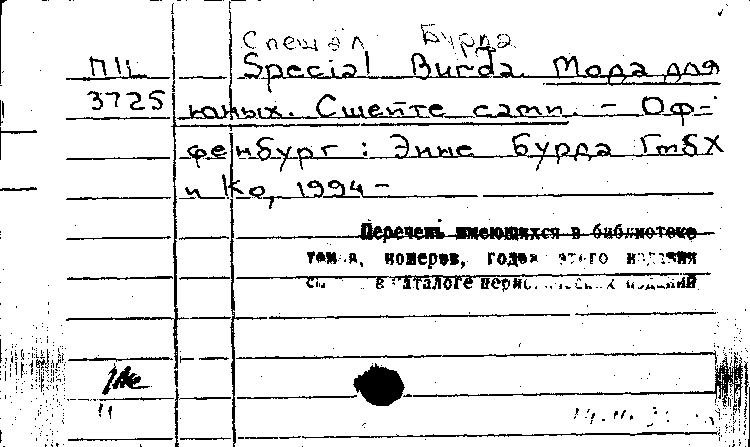 Спешэл Бурда
ПЦ Special Burda. Мода для
3725 юных. Сшейте сами. – Оф-
фенбург: Энне Бурда ГмбХ
и Ко, 1994 –
Перечень имеющихся в библиотеке
томов, номеров, годов этого издания
см. в каталоге периодических изданий